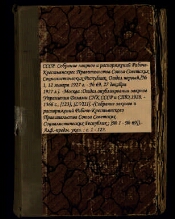 СССР. Собрание законов и распоряжений Рабоче-
Крестьянского Правительства Союза Советских
Социалистических Республик. Отдел первый, №
1, 12 января 1927 г. - № 69, 27 декабря
1927 г. - Москва: Отдел опубликования законов
Управления Делами СНК СССР и СТО, 1928. -
1366 с., [123], [СССР]. -(Собрание законов и
распоряжений Рабоче-Крестьянского
Правительства Союза Советских
Социалистических Республик; № 1 - № 69).
Алф.-предм. указ.: с. 1 - 123.